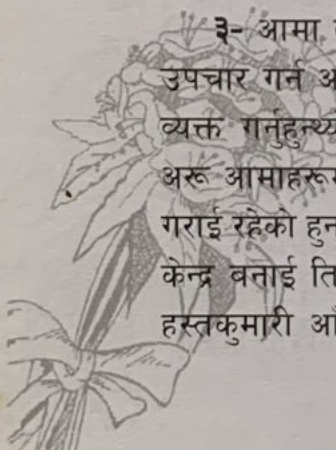 ३- आमा
उपचार गर्न
व्यक्त गर्नुहुन्थ्य
अरू आमाहरू
गराई रहेको हुन
केन्द्र बनाई ति
हस्तकुमारी